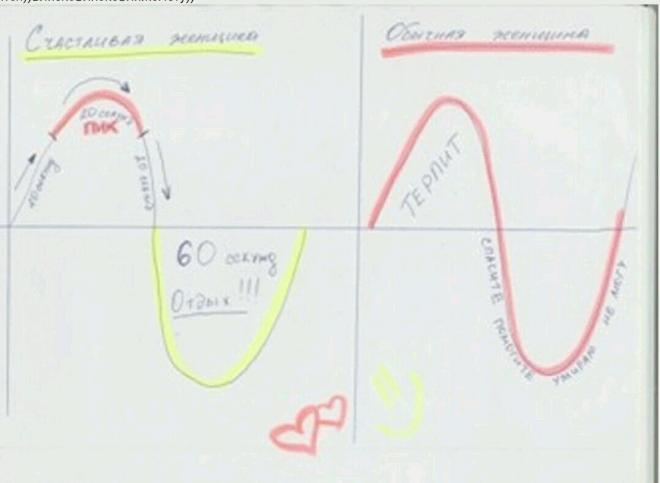 Счастливая женщина
20 секунд
ПИК
60 секунд
Отдых!!!
Обычная женщина
ТЕРПИТ
СПАСИТЕ ПОМОГИТЕ УМИРАЮ НЕ МОГУ